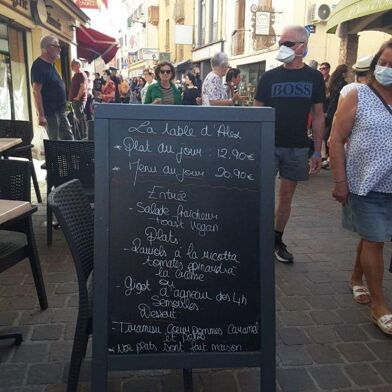 La table d'Alex
* Plat du jour : 12.90€
* Menu du jour 20.90€
Entrée
- Salade fraîcheur
toast vegan
Plats
- Raviolis à la ricotta
tomates épinards à
la crème
ou
- Gigot d'agneau des 4h
Semoules
Dessert
- Tiramisu Pommes Caramel
* Nos plats sont fait maison
BOSS